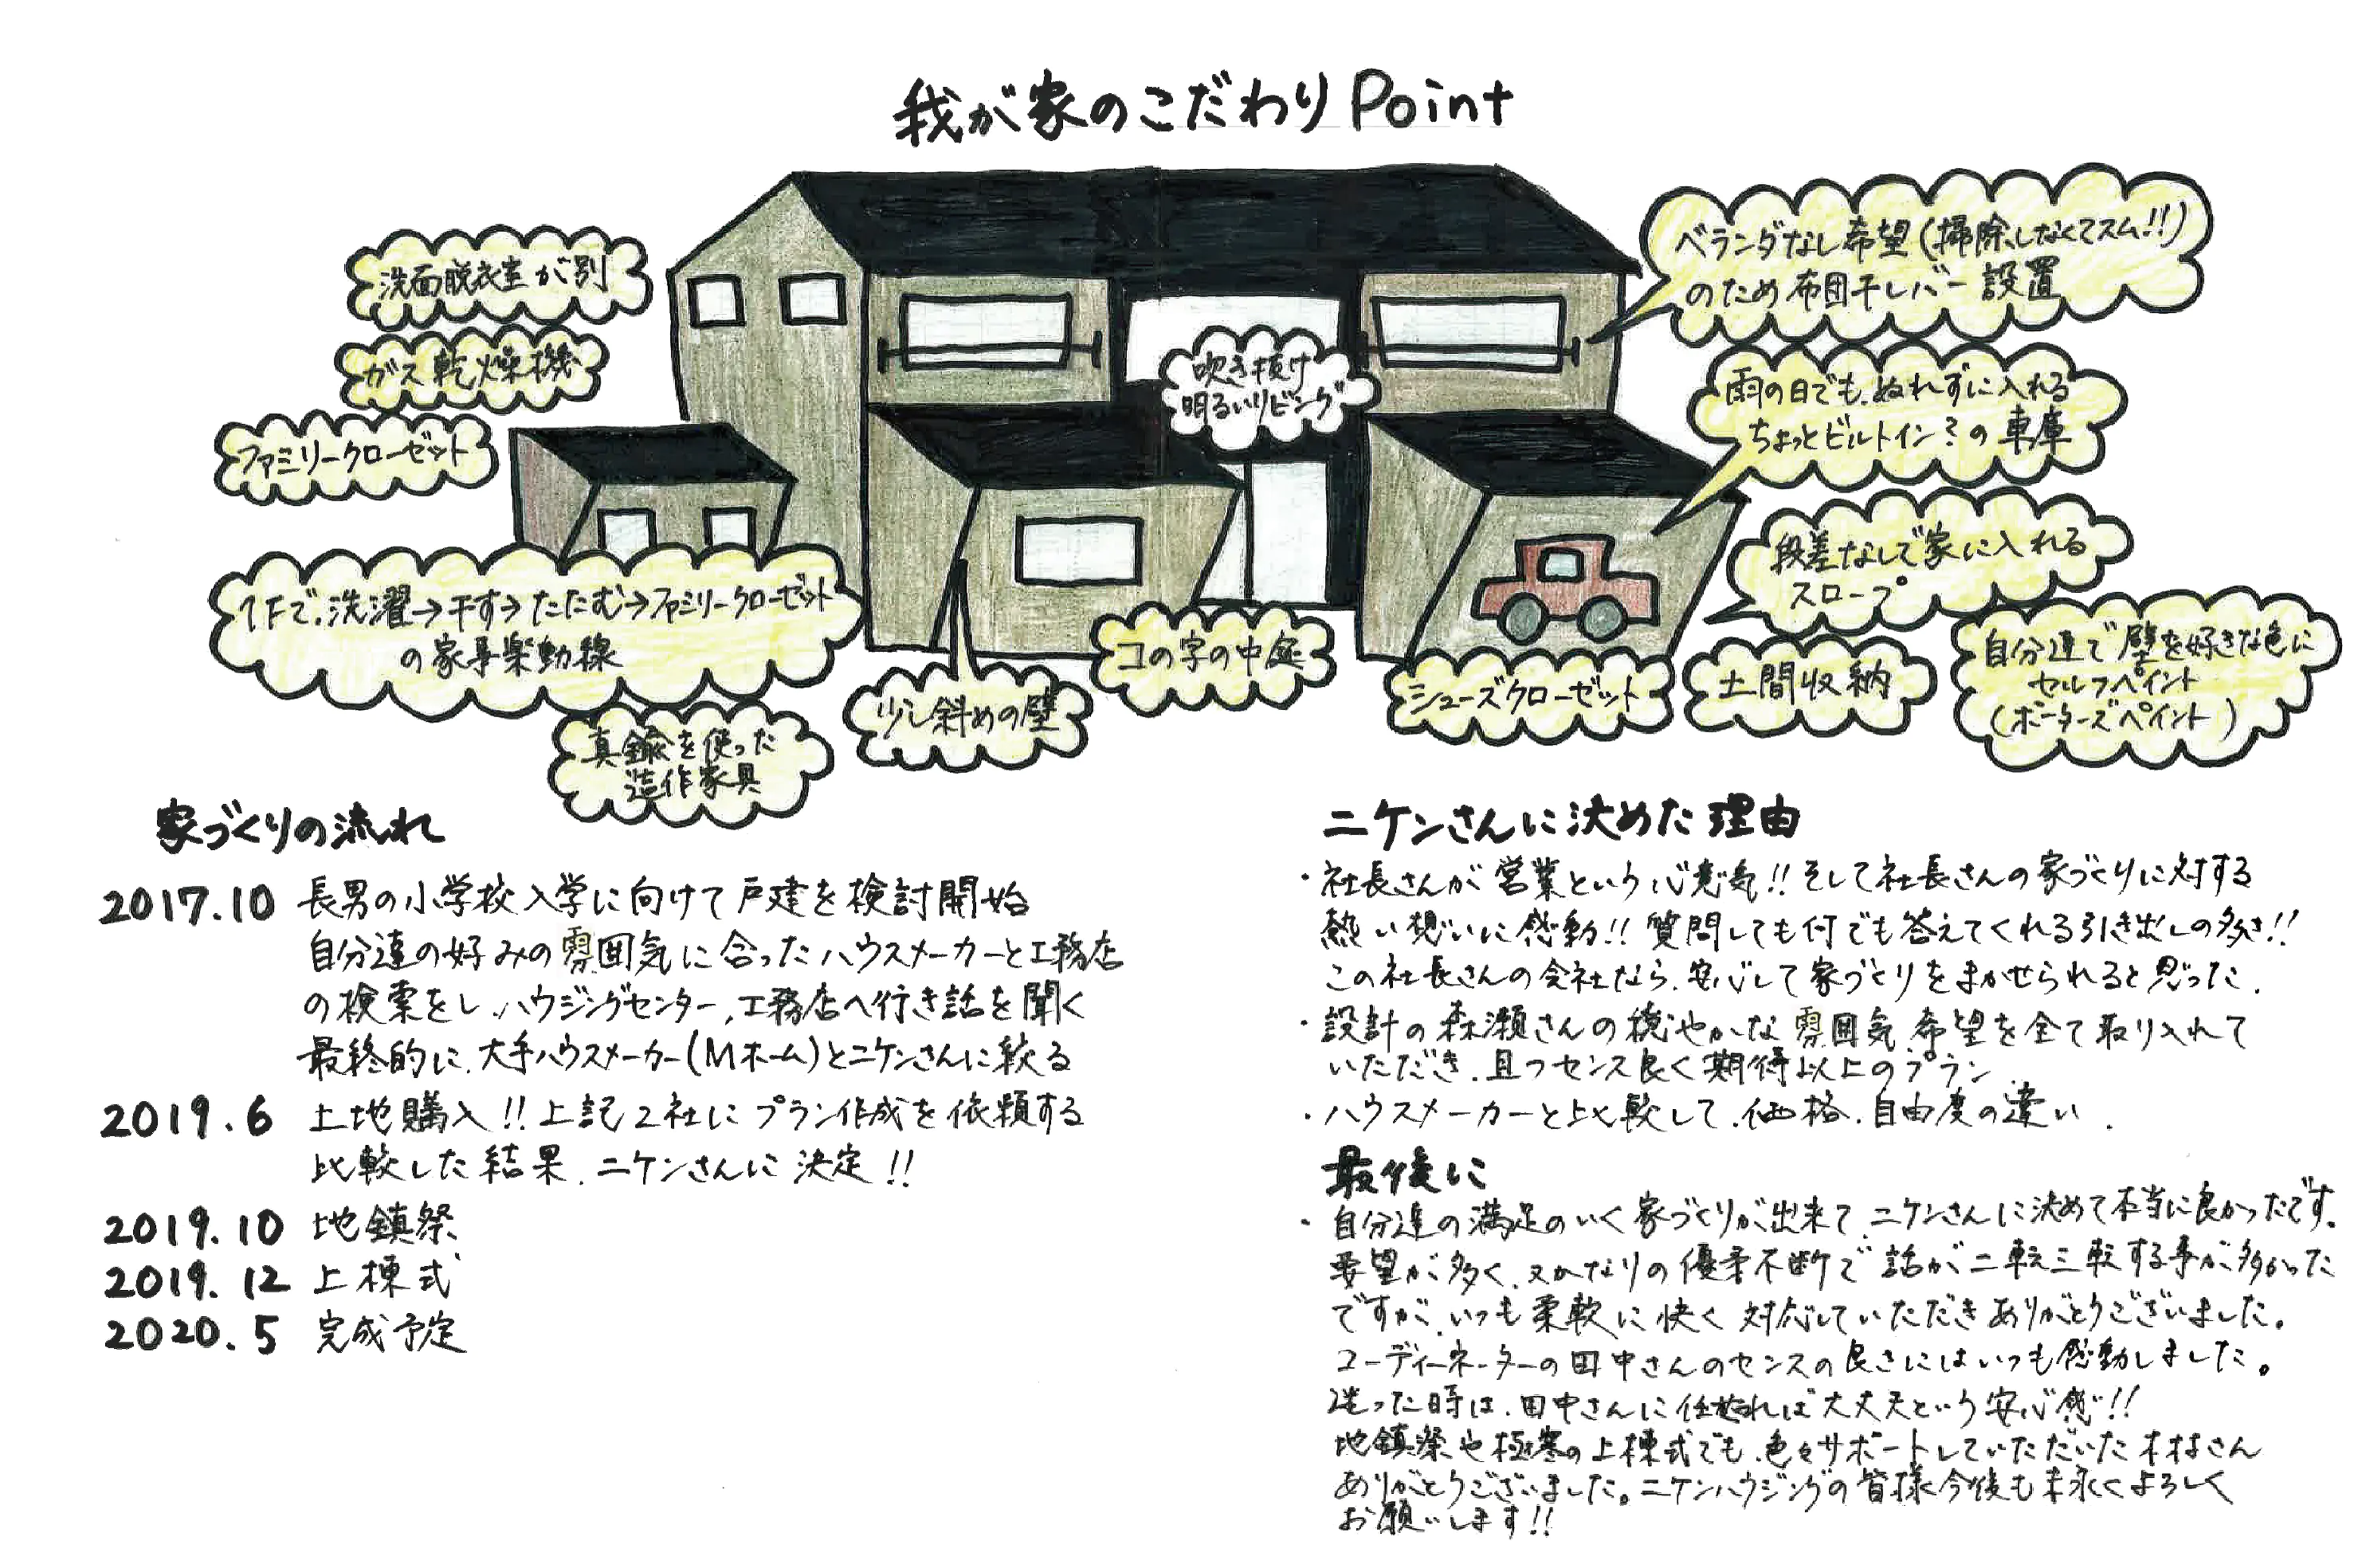 我が家のこだわりPoint
洗面脱衣室が別
ガス乾燥機
ファミリークローゼット
1Fで、洗濯→干す→たたむ→ファミリークローゼット
の家事楽動線
真鍮を使った
造作家具
少し斜めの壁
コの字の中庭
吹き抜け
明るいリビング
ベランダなし希望(掃除しなくてスム!!)
のため布団干しバー設置
雨の日でも、ぬれずに入れる
ちょっとビルトイン?の車庫
段差なしで家に入れる
スロープ
シューズクローゼット
土間収納
自分達で壁を好きな色に
セルフペイント
(ポーターズペイント)
家づくりの流れ
2017.10 長男の小学校入学に向けて戸建を検討開始
自分達の好みの雰囲気に合ったハウスメーカーと工務店
の検索をし、ハウジングセンター、工務店へ行き話を聞く
最終的に、大手ハウスメーカー(Mホーム)とニケンさんに絞る
2019.6 土地購入!!上記2社にプラン作成を依頼する
比較した結果、ニケンさんに決定!!
2019.10 地鎮祭
2019.12 上棟式
2020.5 完成予定
ニケンさんに決めた理由
・社長さんが営業という心意気!!そして社長さんの家づくりに対する
熱い想いに感動!!質問しても何でも答えてくれる引き出しの多さ!!
この社長さんの会社なら、安心して家づくりをまかせられると思った.
・設計の森瀬さんの穏やかな雰囲気、希望を全て取り入れて
いただき、且つセンス良く期待以上のプラン
・ハウスメーカーと比較して、価格、自由度の違い.
最後に
・自分達の満足のいく家づくりが出来て、ニケンさんに決めて本当に良かったです。
要望が多く、又かなりの優柔不断で話が二転三転する事が多かった
ですが、いつも柔軟に快く対応していただきありがとうございました。
コーディネーターの田中さんのセンスの良さにはいつも感動しました。
迷った時は、田中さんに任せれば大丈夫という安心感!!
地鎮祭や極寒の上棟式でも、色々サポートしていただいた木村さん
ありがとうございました。ニケンハウジングの皆様今後も末永くよろしく
お願いします!!